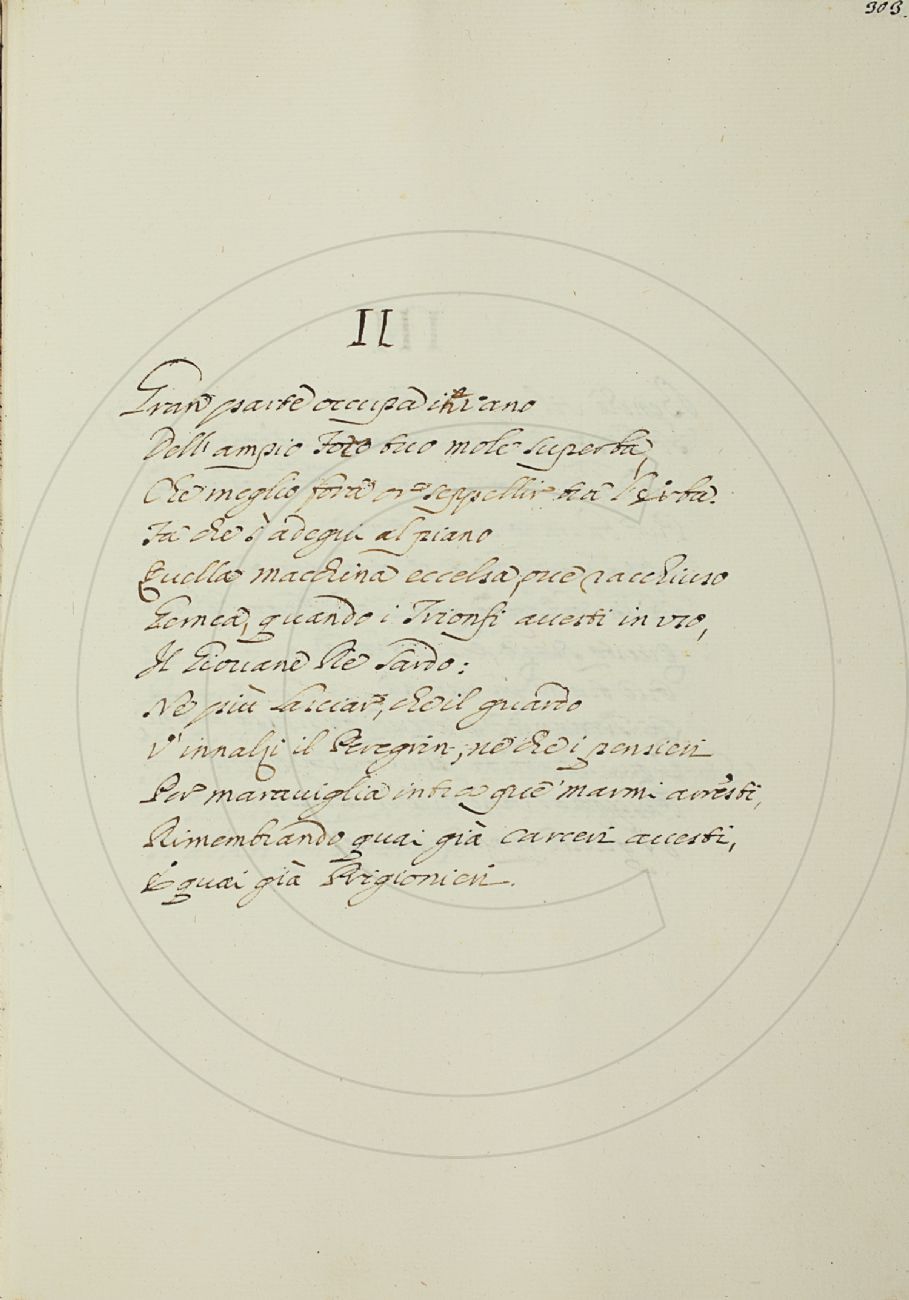 303.
II
Gran parte occupa in vano
Dell' ampio Foro tuo mole superba,
Che meglio fora or seppellir tra l'erba.
Fa che s' adegui al piano
Quella macchina eccelsa, ove racchiuso
Gemea, quando i Trionfi avesti in uso,
Il Giovane Re Sardo:
Ne più lasciar, che il guardo
V' innalzi il Peregrin, ne che i pensieri
Per maraviglia intra que' marmi arresti,
Rimembrando quai già carceri avesti,
E quai già Prigionieri.